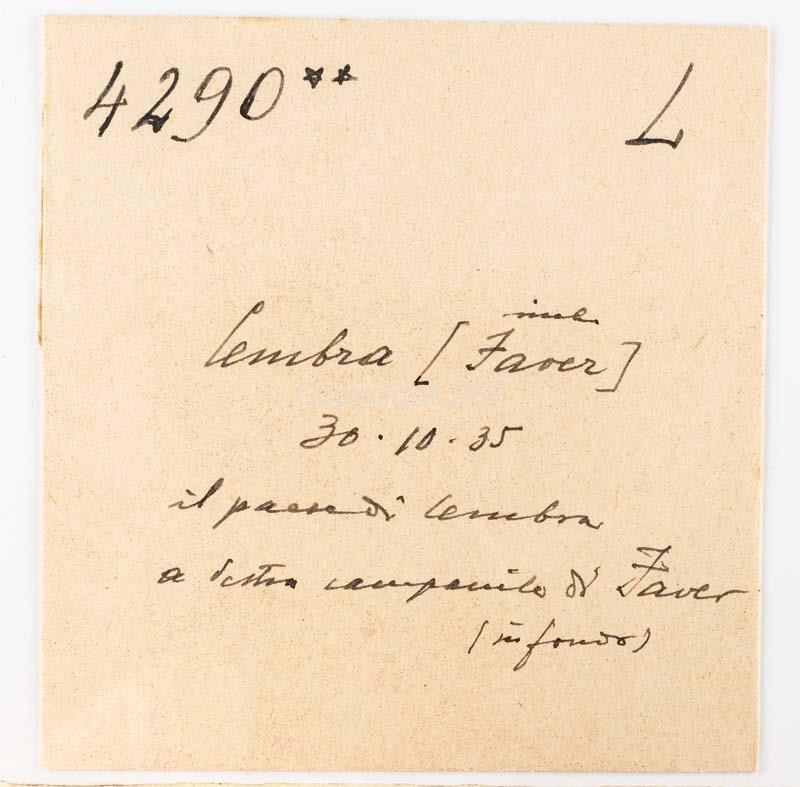 4290** L
Cembra [Faver]
30.10.35
il paese di Cembra
a destra campanile di Faver
(in fondo)